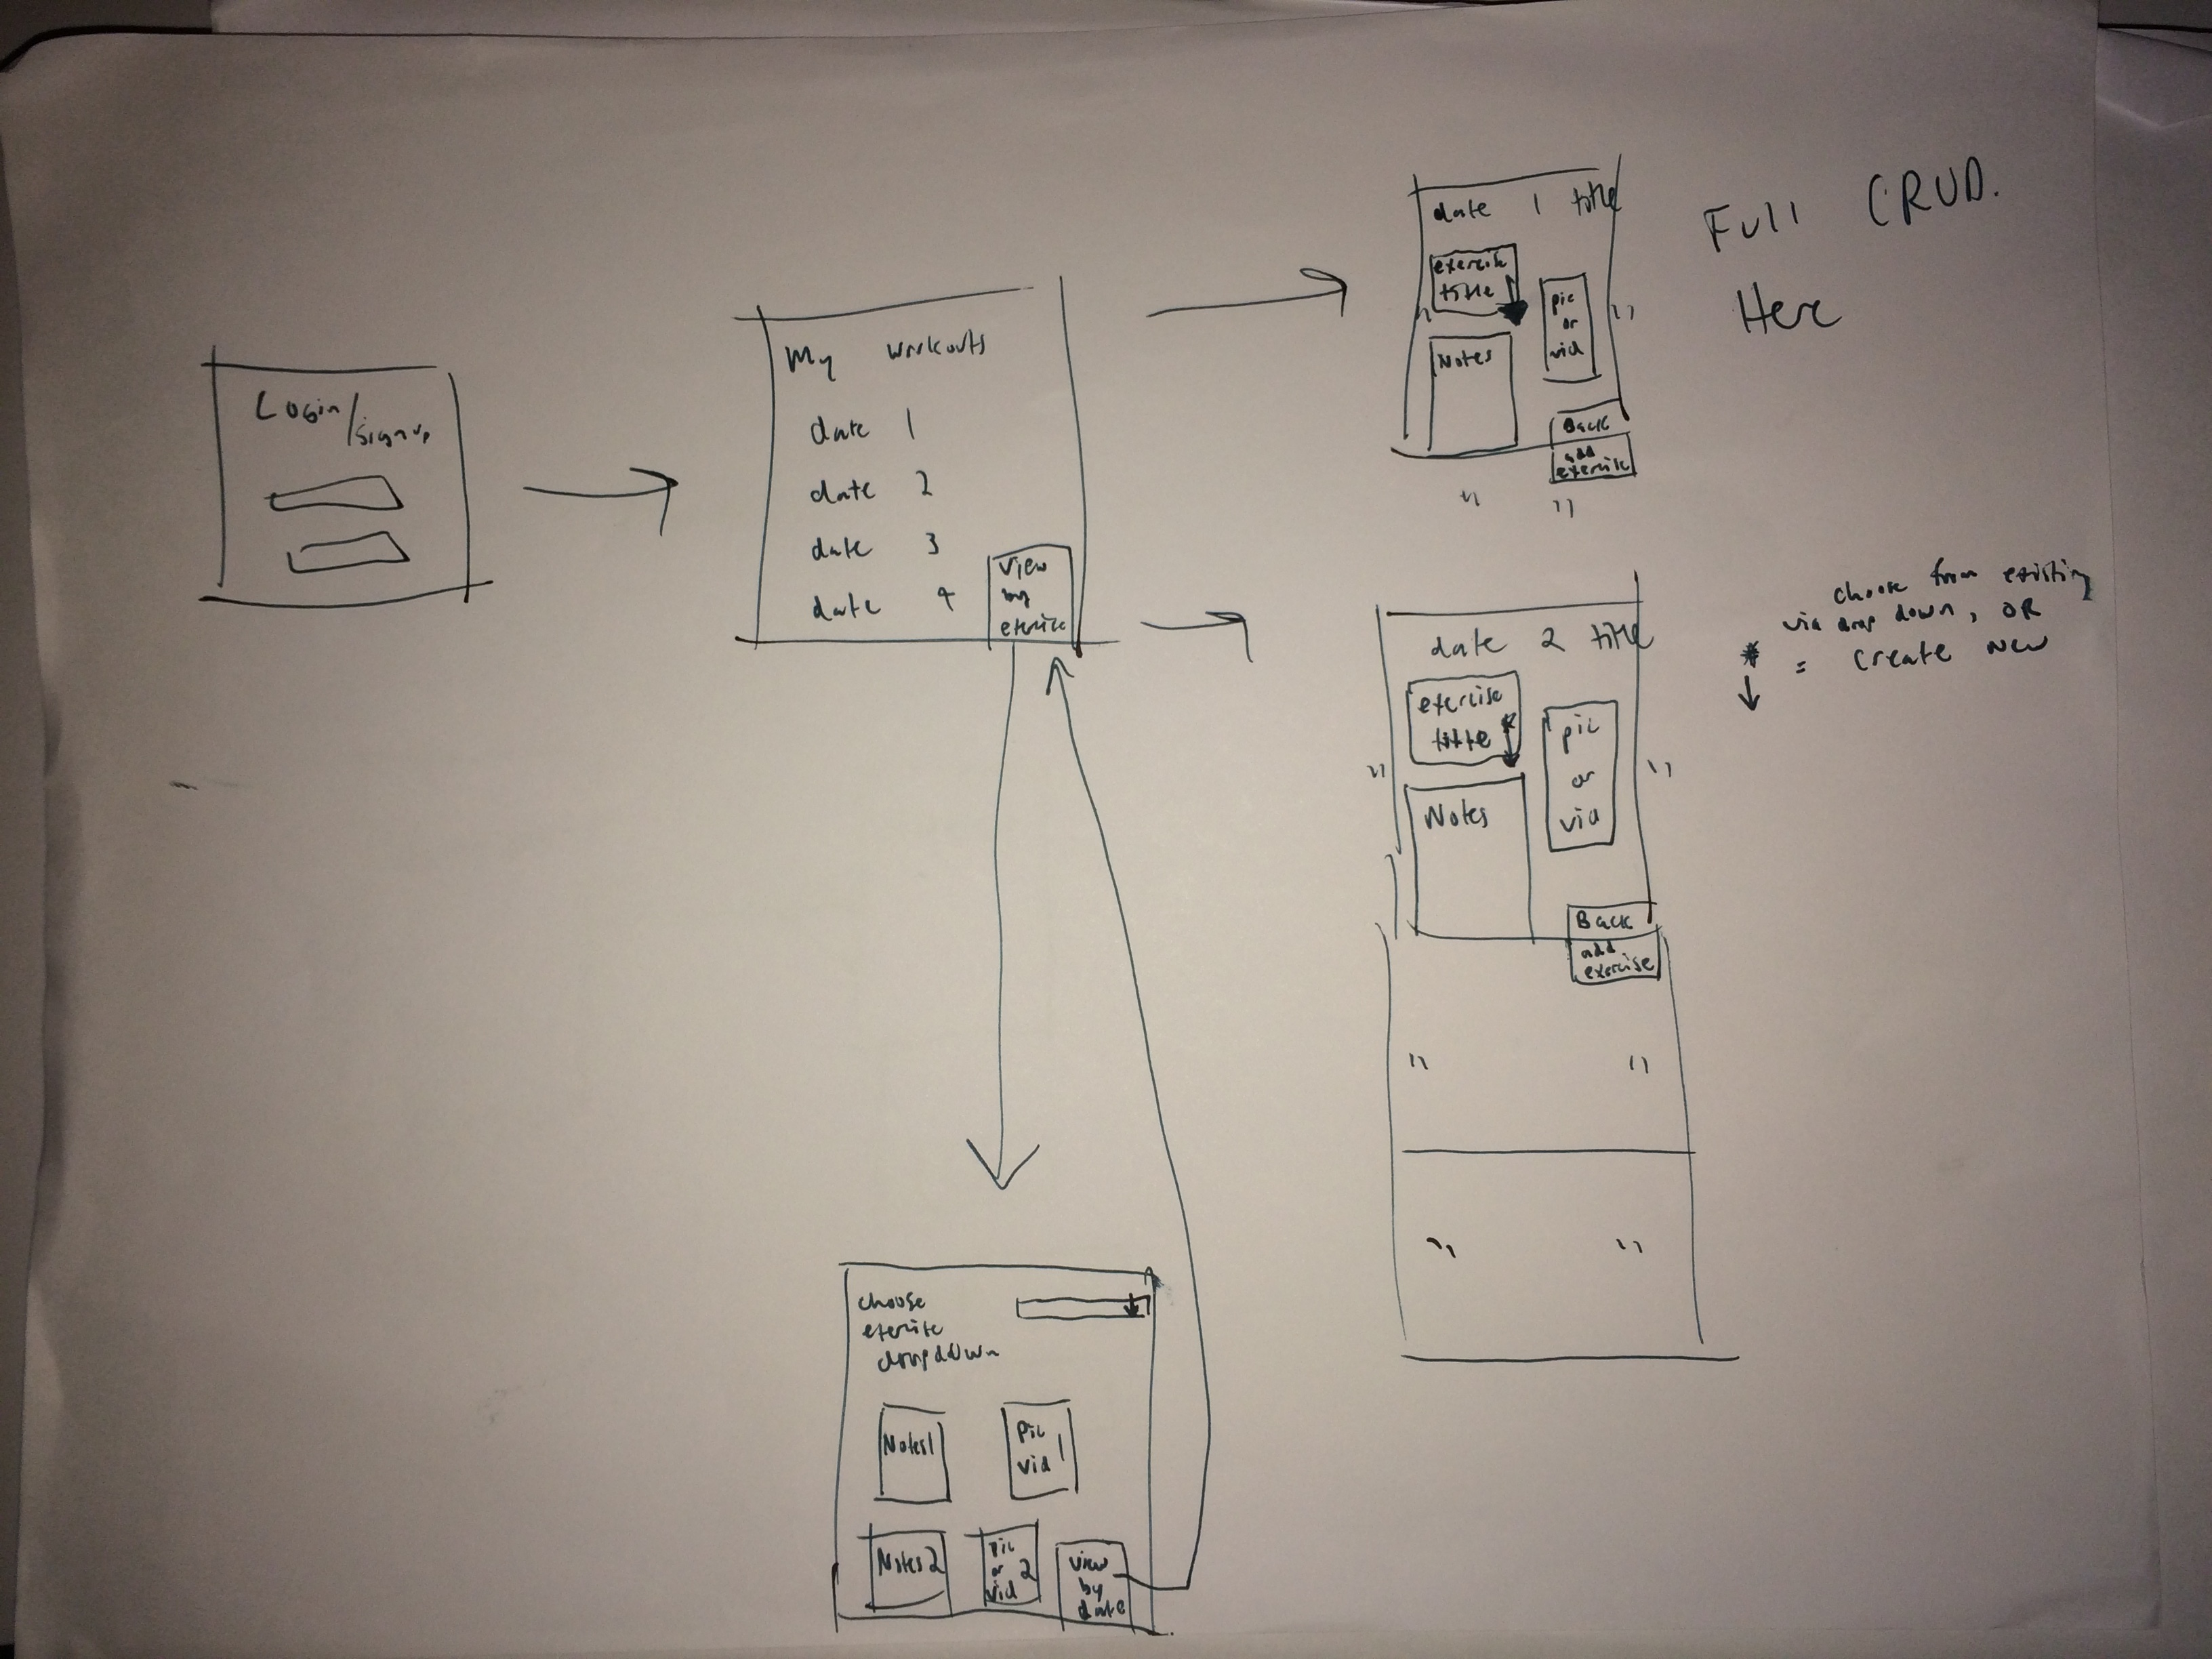 Login/signup
My workouts
date 1
date 2
date 3
date 4
view
by
exercise
date 1 title
exercise
title
pic
or
vid
Notes
Back
add
exercise
" "
" "
Full CRUD.
Here
date 2 title
exercise
title
pic
or
vid
Notes
" "
Back
add
exercise
" "
" "
choose from existing
via drop down, OR
* = create new
↓
choose
exercise
dropdown
Notes 1
Pic
vid 1
Notes 2
pic
or 2
vid
view
by
date